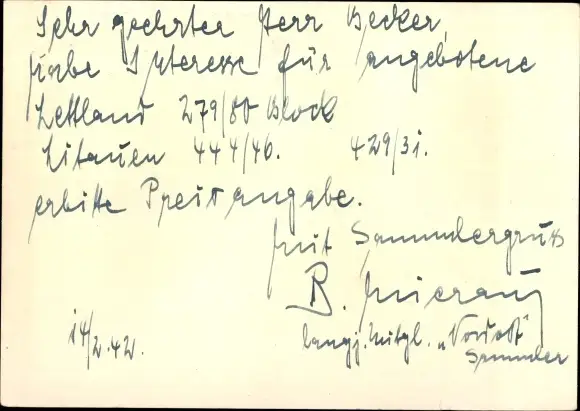 Sehr geehrter Herr Becker,
habe Interesse für angebotene
Lettland 279/80 Block
Litauen 444/46. 429/31.
erbitte Preisangabe.
mit Sammlergruß
B.
langj. Mitgl. „Nordost"
Sammler
14/2.42.